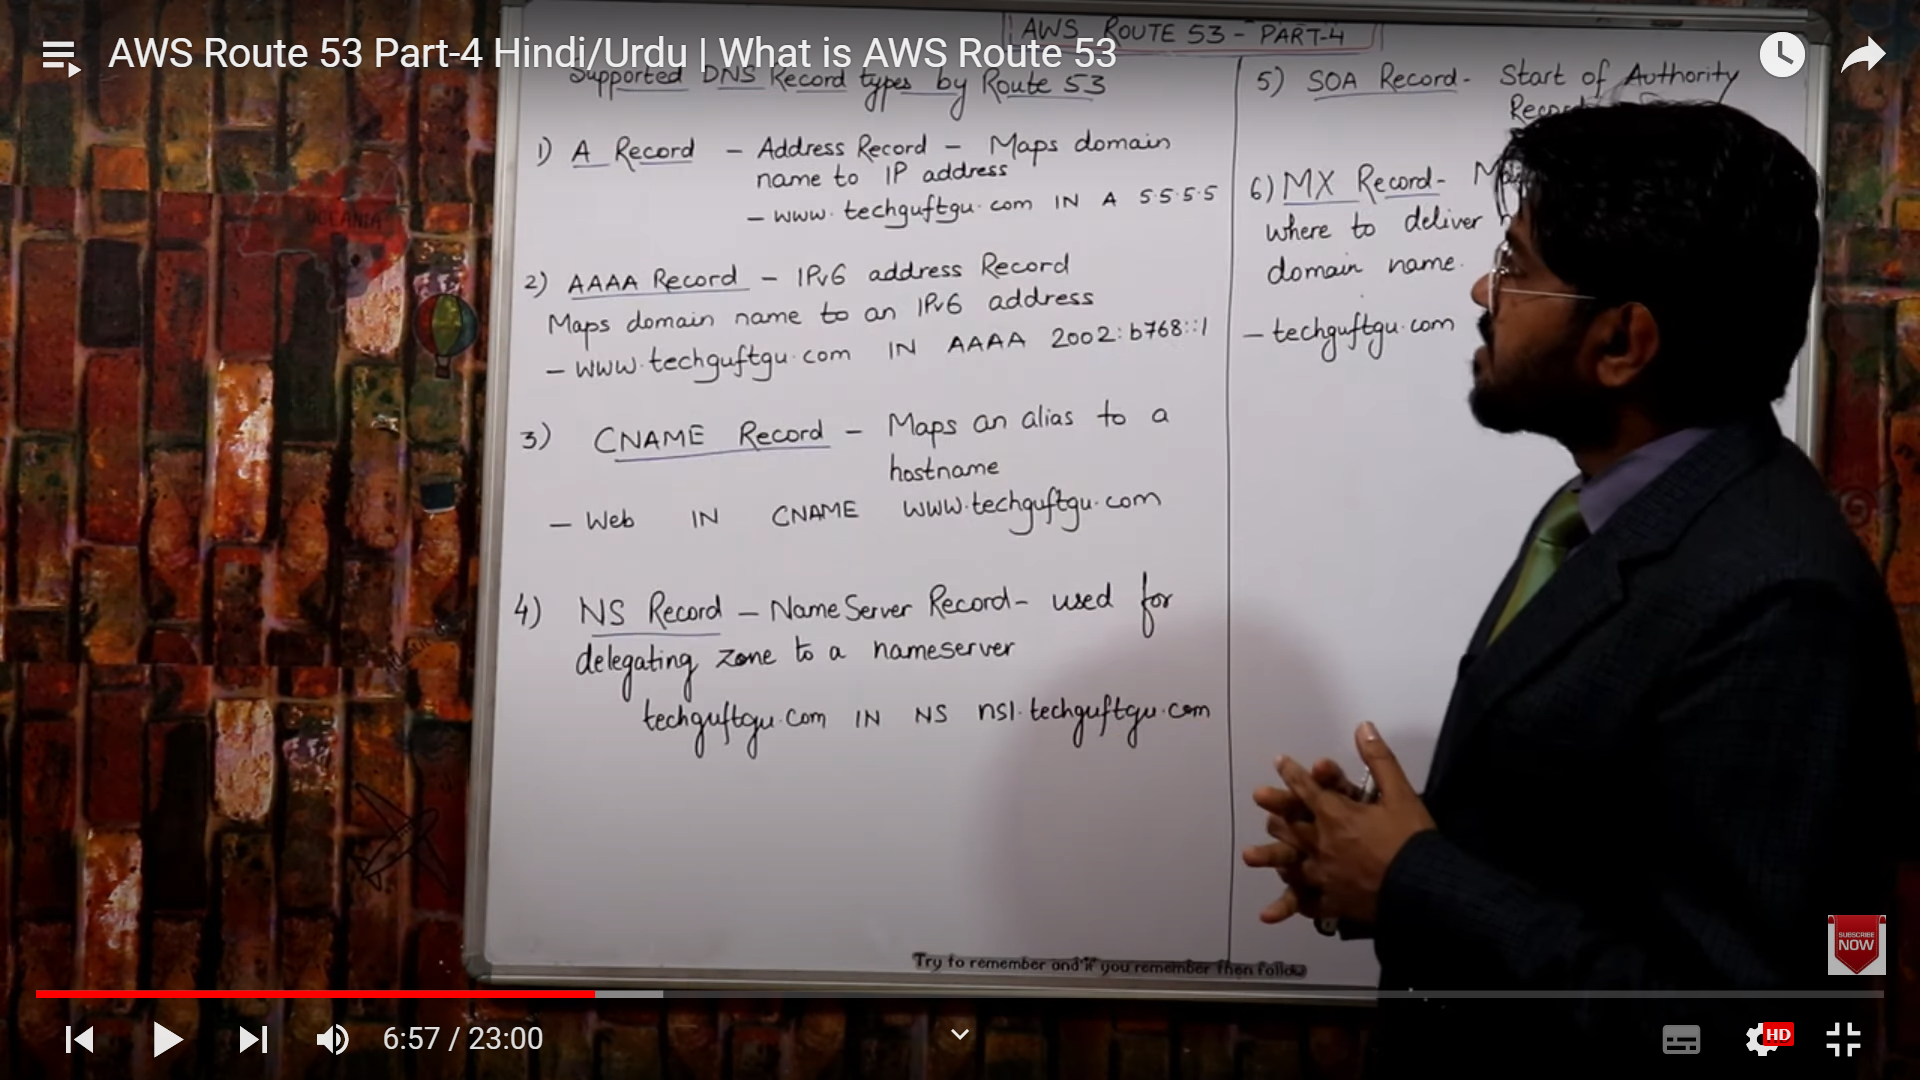 AWS Route 53 Part-4 Hindi/Urdu | What is AWS Route 53
AWS ROUTE 53 - PART-4
Supported DNS Record types by Route 53
1) A Record - Address Record - Maps domain
name to IP address
- www.techguftgu.com IN A 5.5.5.5
2) AAAA Record - IPv6 address Record
Maps domain name to an IPv6 address
- www.techguftgu.com IN AAAA 2002:b768::1
3) CNAME Record - Maps an alias to a
hostname
- Web IN CNAME www.techguftgu.com
4) NS Record - NameServer Record- used for
delegating zone to a nameserver
techguftgu.com IN NS ns1.techguftgu.com
5) SOA Record- Start of Authority
6) MX Record-
where to deliver
domain name.
- techguftgu.com
OCEANIA
Try to remember and if you remember then follow
SUBSCRIBE
NOW
6:57 / 23:00
HD